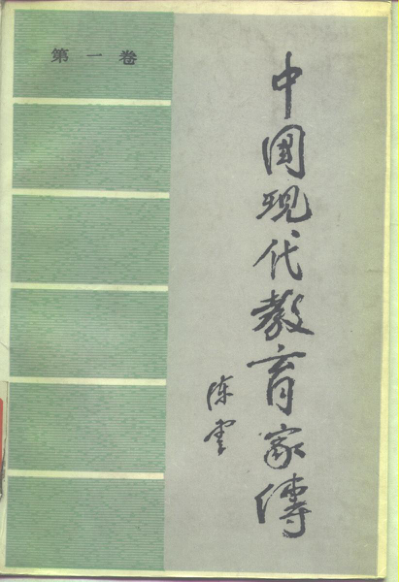 第一卷
中国现代教育家傳
陈云